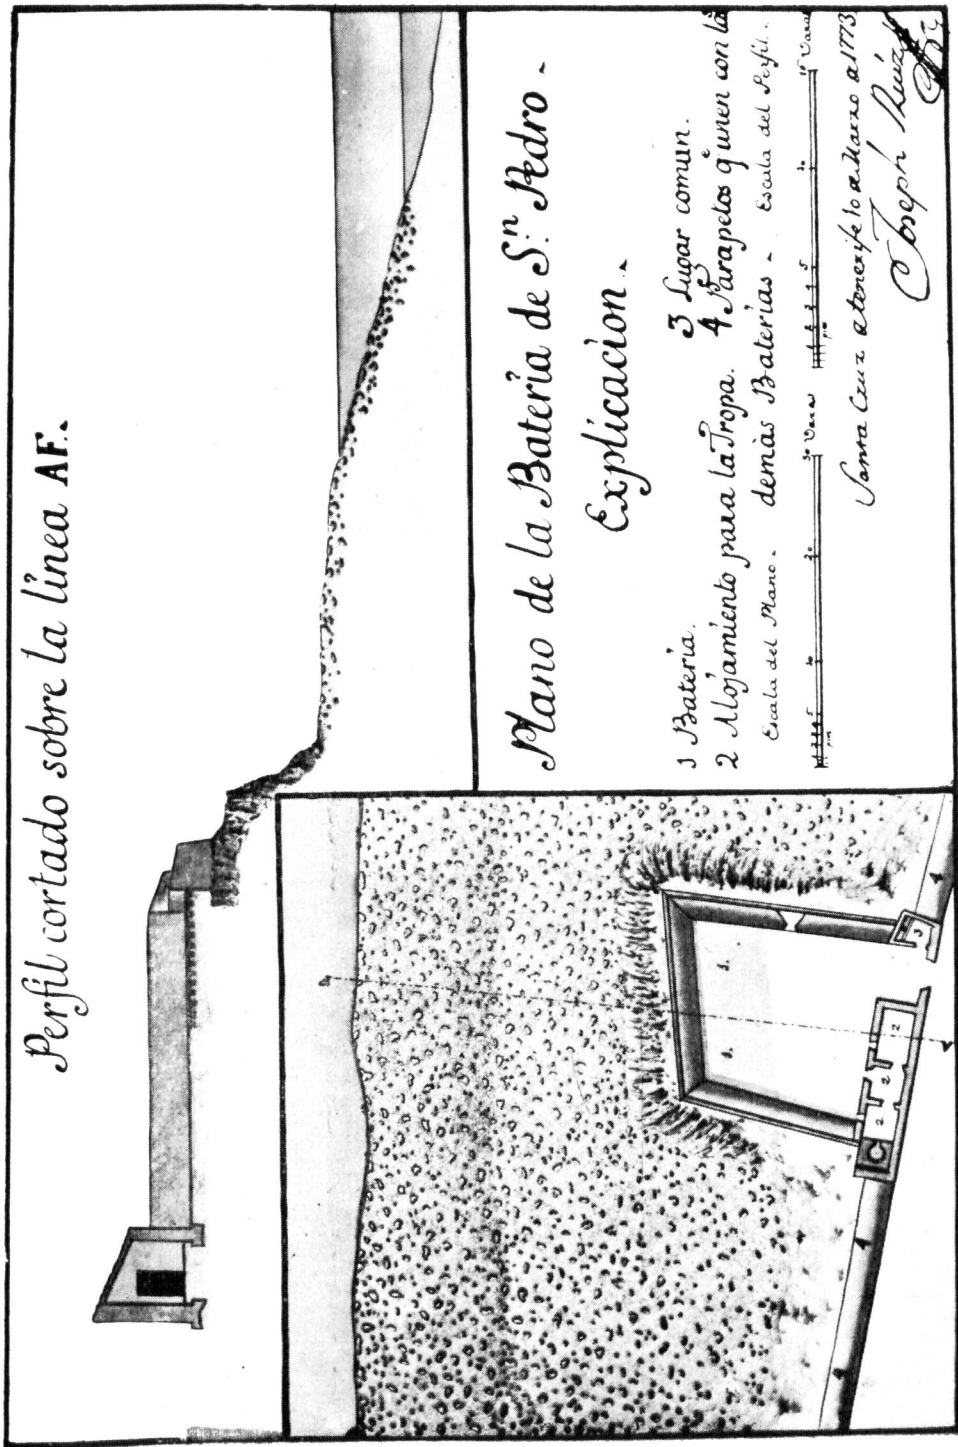 Perfil cortado sobre la línea AF.
Plano de la Bateria de S.n Pedro.
Explicacion.
1 Bateria.
2 Alojamiento para la Tropa.
3 Lugar comun.
4 Parapetos q.e unen con las
demàs Baterias.
Escala del Plano.
Escala del Perfil.
5
10
20
30 Varas
1 2 3 4 5
10
15 Varas
Santa Cruz de tenerife 10 de Marzo de 1773
Joseph Ruiz
1.
1.
2
2
2
3
4
4
4